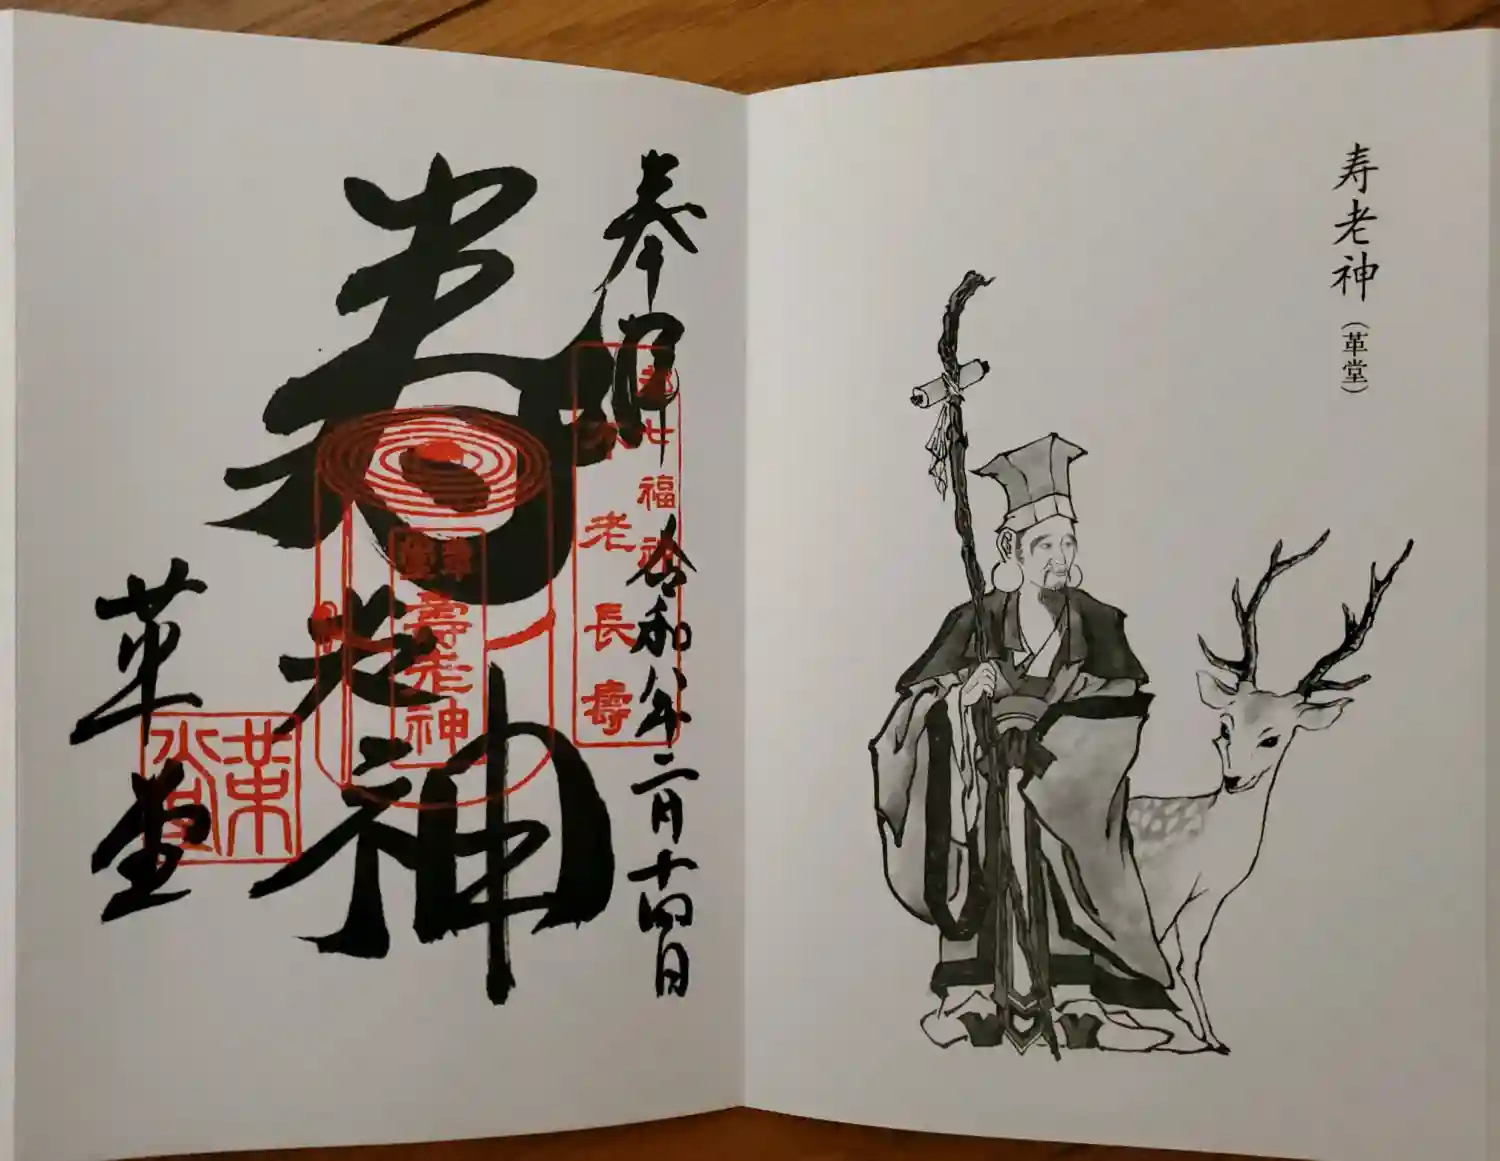 寿老神
(革堂)
奉拝
令和八年二月十四日
都七福神
不老長壽
寿老神
革堂
壽老神
革堂
革堂